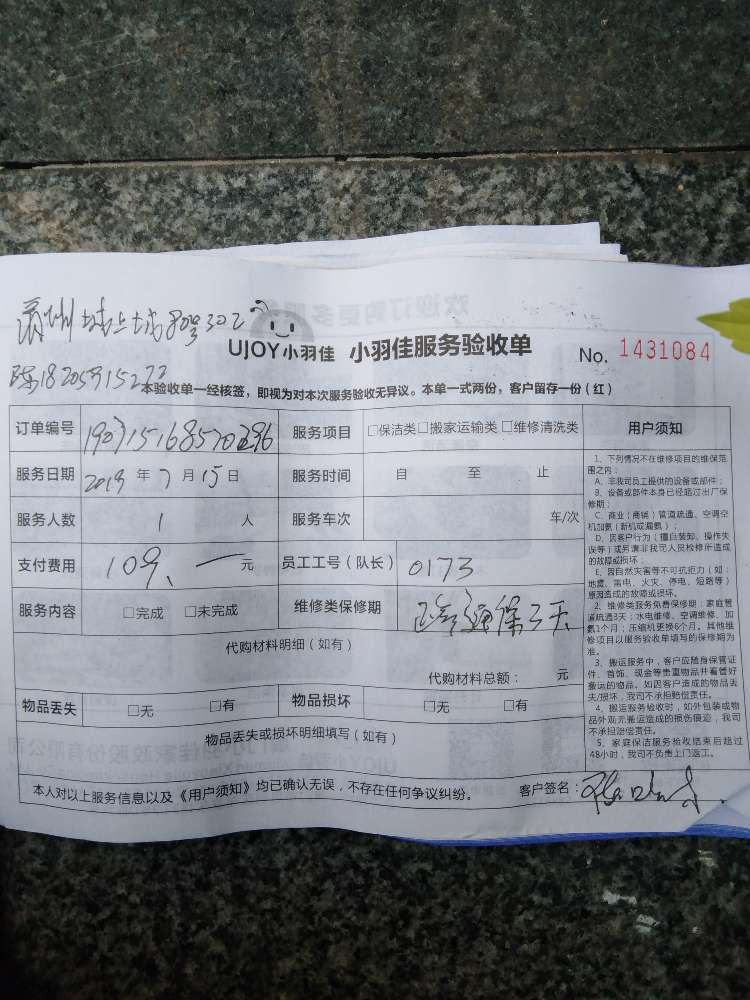 UJOY小羽佳 小羽佳服务验收单 No. 1431084
本验收单一经核签，即视为对本次服务验收无异议。本单一式两份，客户留存一份（红）
订单编号 服务项目 □保洁类□搬家运输类□维修清洗类
服务日期 2019年7月15日 服务时间 自 至 止
服务人数 1 人 服务车次 年/次
支付费用 109、一元 员工工号（队长） 0173
服务内容 □完成 □未完成 维修类保修期 保3天
代购材料明细（如有）
代购材料总额： 元
物品丢失 □无 □有 物品损坏 □无 □有
物品丢失或损坏明细填写（如有）
本人对以上服务信息以及《用户须知》均已确认无误，不存在任何争议纠纷。 客户签名：
用户须知
1、下列情况不在维修项目的维保范
围之内：
A、非我司员工提供的设备或部件；
B、设备或部件本身已经超过出厂保
修期；
C、商业（商铺）管道疏通、空调空
机加氟（新机或漏氟）；
D、因客户行为（擅自装卸、操作失
误等）或另请非我司人员检修所造成
的故障或损坏；
E、因自然灾害等不可抗拒力（如：
地震、雷电、火灾、停电、短路等）
原因造成的故障或损坏。
2、维修类服务免费保修期：家庭管
道疏通3天；水电维修、空调维修、加
氟1个月；压缩机更换6个月。其他维
修项目以服务验收单填写的保修期为
准。
3、搬运服务中，客户应随身保管证
件、首饰、现金等贵重物品并看管好
搬运的物品。如因客户造成的物品丢
失/损坏，我司不承担赔偿责任。
4、搬运服务验收时，如外包装或物
品外观无搬运造成的损伤痕迹，我司
不承担赔偿责任。
5、家庭保洁服务验收结束后超过
48小时，我司不负责上门返工。